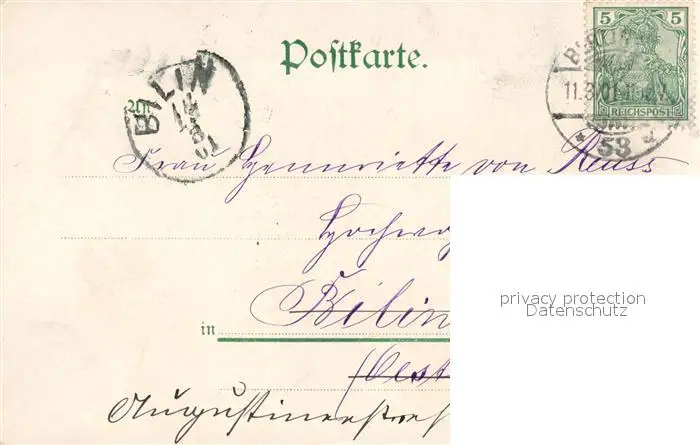 Postkarte.
5 5
REICHSPOST
BILIN
01
An
11.3.01
53
Frau Henriette von Reuss
Hochwo
in Bilin
(Oest
Augustinerstraß
privacy protection
Datenschutz